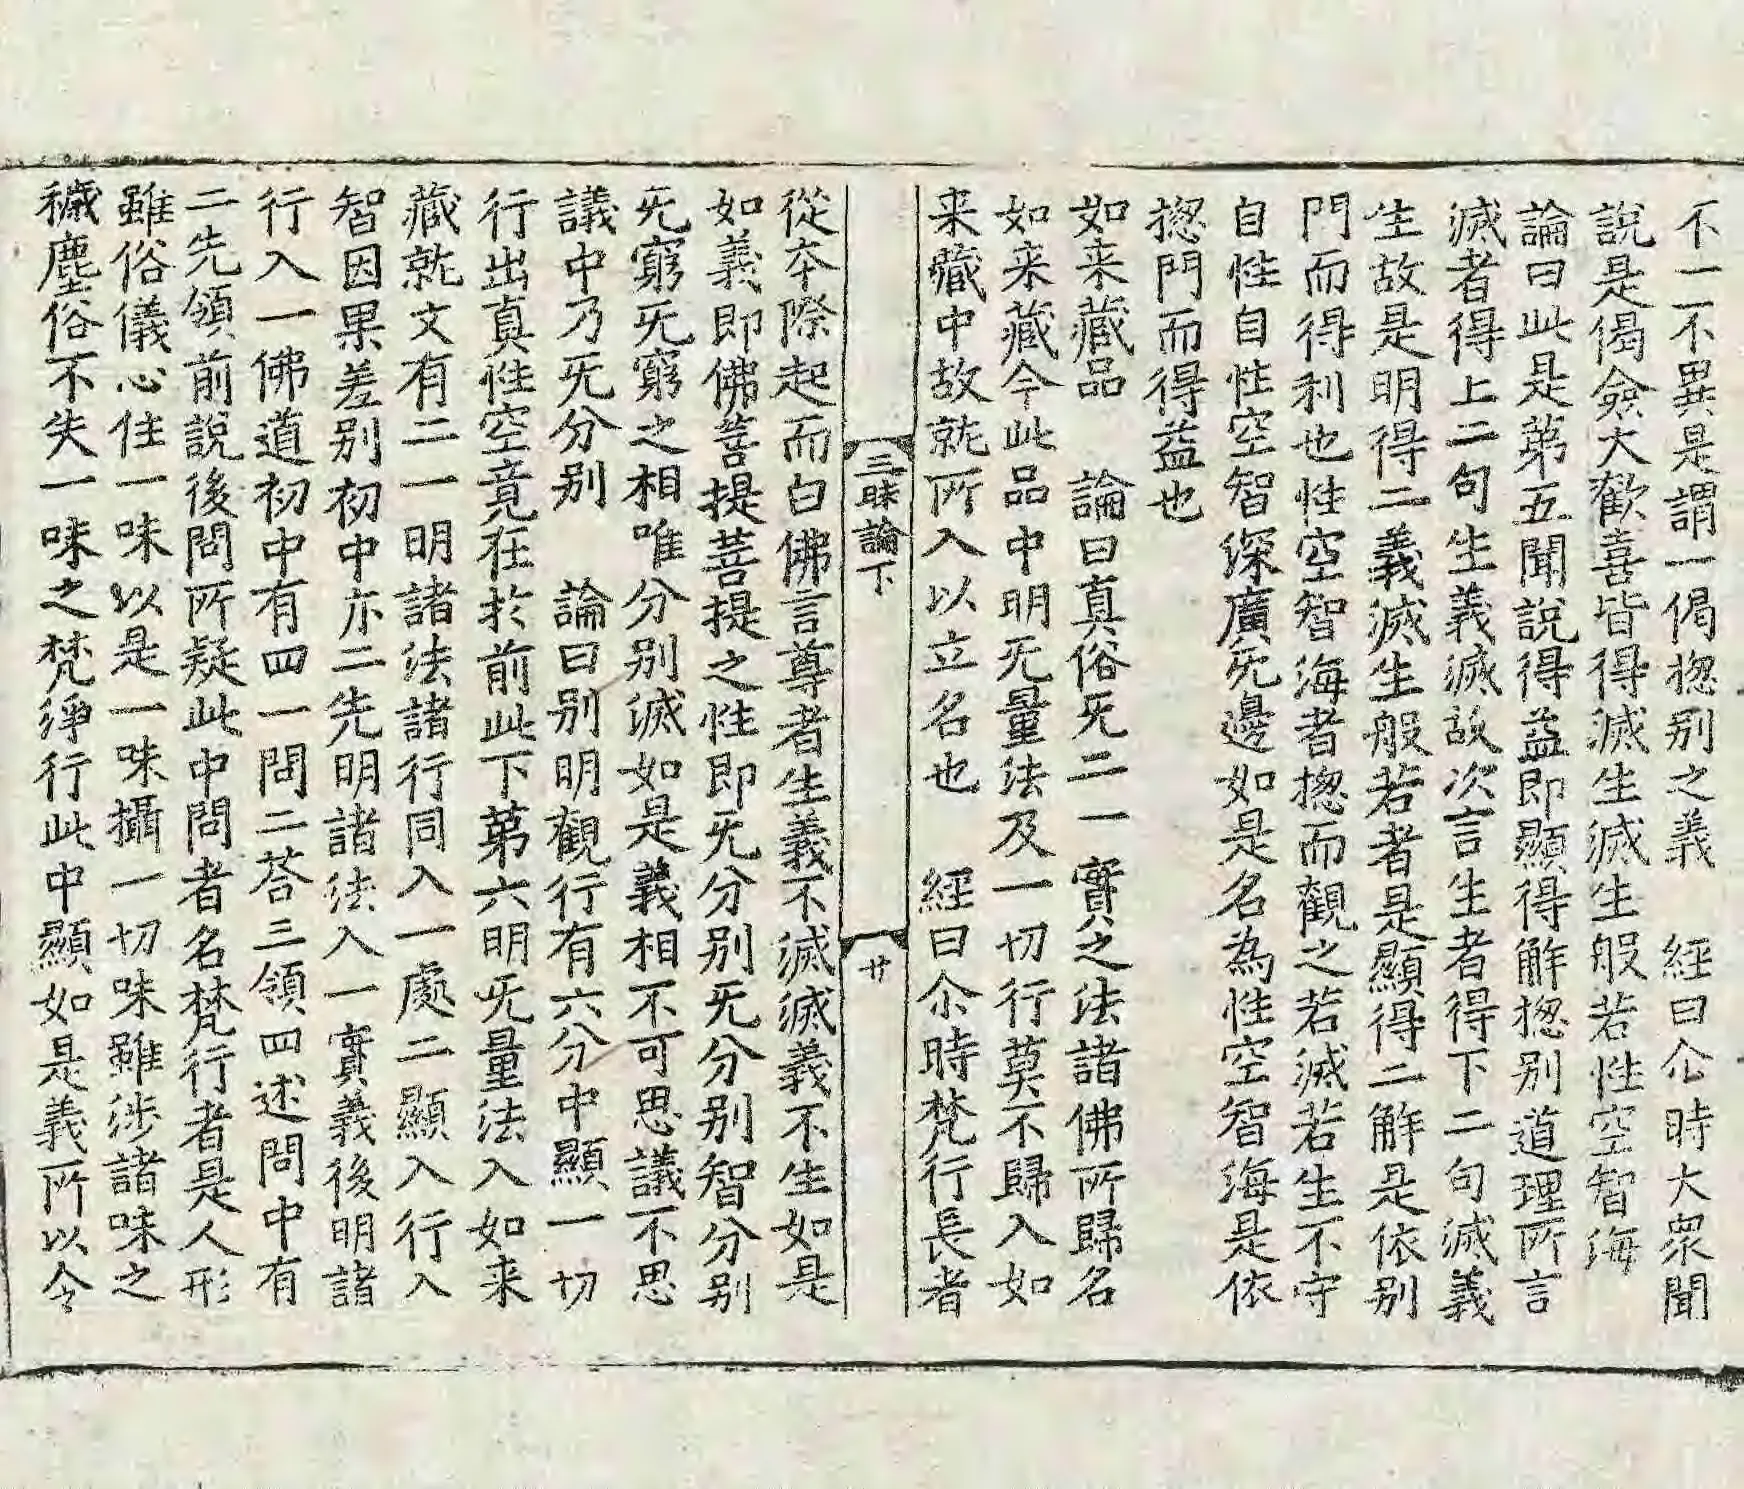 不一不異是謂一偈揔别之義　經曰尒時大眾聞
說是偈僉大歡喜皆得滅生滅生般若性空智海
論曰此是苐五聞說得益即顯得解揔别道理所言
滅者得上二句生義滅故次言生者得下二句滅義
生故是明得二義滅生般若者是顯得二解是依别
門而得利也性空智海者揔而觀之若滅若生不守
自性自性空智深廣旡邊如是名為性空智海是依
揔門而得益也
如来藏品　論曰真俗旡二一實之法諸佛所歸名
如来藏今此品中明旡量法及一切行莫不歸入如
来藏中故就所入以立名也　經曰尒時梵行長者
三昧論下　廿
從本際起而白佛言尊者生義不滅滅義不生如是
如義即佛菩提菩提之性即旡分别旡分别智分别
旡窮旡窮之相唯分别滅如是義相不可思議不思
議中乃旡分别　論曰别明觀行有六分中顯一切
行出真性空竟在扵前此下苐六明旡量法入如来
藏就文有二一明諸法諸行同入一處二顯入行入
智因果差别初中亦二先明諸法入一實義後明諸
行入一佛道初中有四一問二荅三領四述問中有
二先領前說後問所疑此中問者名梵行者是人形
雖俗儀心住一味以是一味攝一切味雖涉諸味之
穢塵俗不失一味之梵淨行此中顯如是義所以令